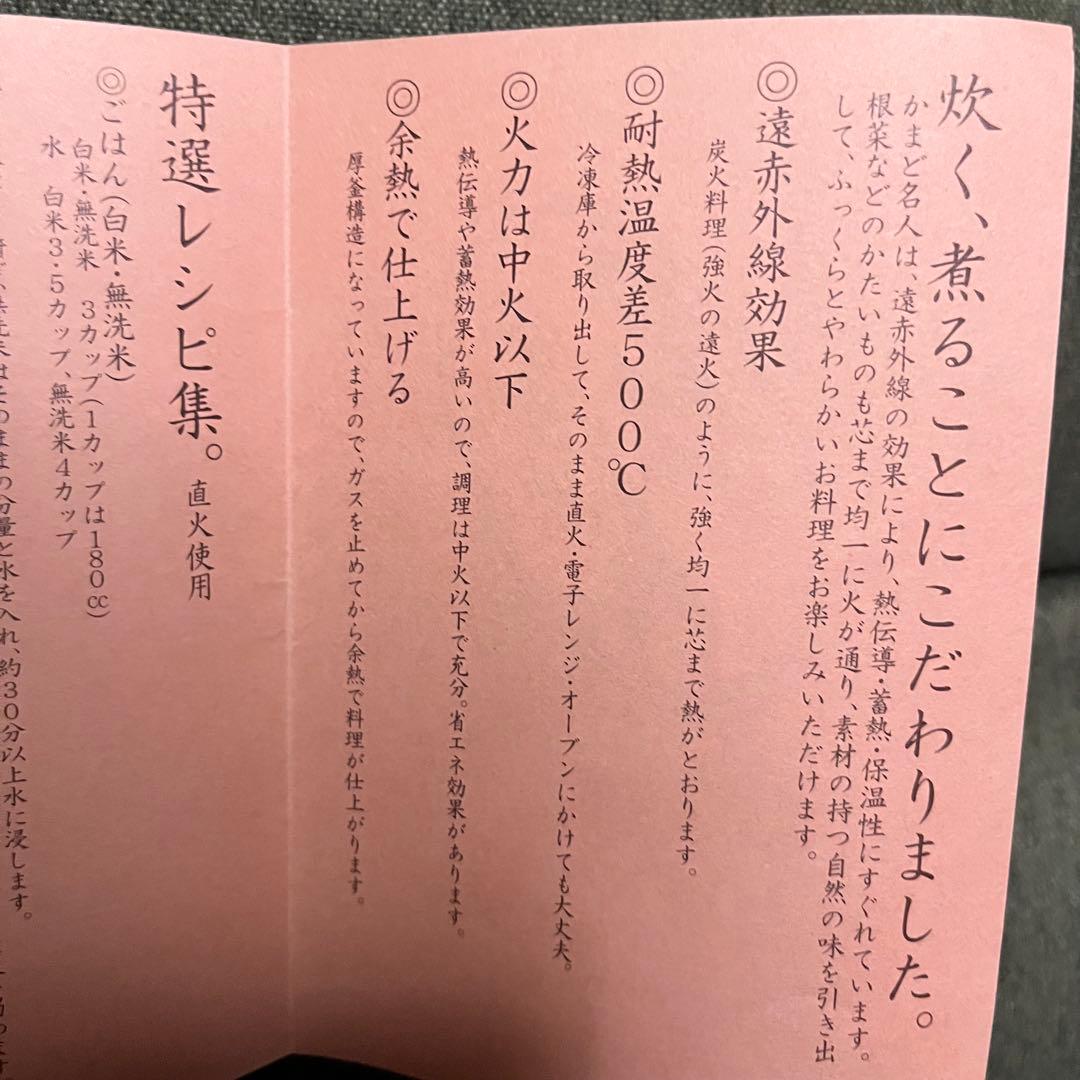 炊く、煮ることにこだわりました。
かまど名人は、遠赤外線の効果により、熱伝導・蓄熱・保温性にすぐれています。
根菜などのかたいものも芯まで均一に火が通り、素材の持つ自然の味を引き出
して、ふっくらとやわらかいお料理をお楽しみいただけます。
◎遠赤外線効果
炭火料理(強火の遠火)のように、強く均一に芯まで熱がとおります。
◎耐熱温度差500℃
冷凍庫から取り出して、そのまま直火・電子レンジ・オーブンにかけても大丈夫。
◎火力は中火以下
熱伝導や蓄熱効果が高いので、調理は中火以下で充分。省エネ効果があります。
◎余熱で仕上げる
厚釜構造になっていますので、ガスを止めてから余熱で料理が仕上がります。
特選レシピ集。 直火使用
◎ごはん(白米・無洗米)
白米・無洗米 3カップ(1カップは180cc)
水 白米3.5カップ、無洗米4カップ
無洗米はそのままの分量と水を入れ、約30分以上水に浸します。